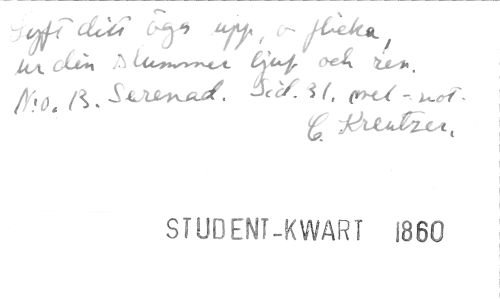 Lyft ditt öga upp, o flicka,
ur din slummer ljuf och ren.
N:o. 13. Serenad. Sid. 31. mel-not.
C. Kreutzer.
STUDENT-KWART 1860